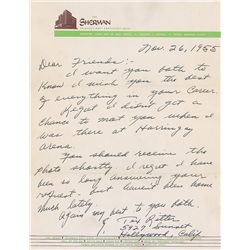 SHERMAN
Nov 26, 1955
Dear Friends:-
I want you both to
know I wish you the best
of everything in your career.
Regret I didn't get a
chance to meet you when I
was there at Harringay
Arena.
You should receive the
photo shortly. I regret I have
been so long answering your
request. but haven't been home
much lately.
Again my best to you both.
Tex Ritter
5927 Sunset
Hollywood, Calif.